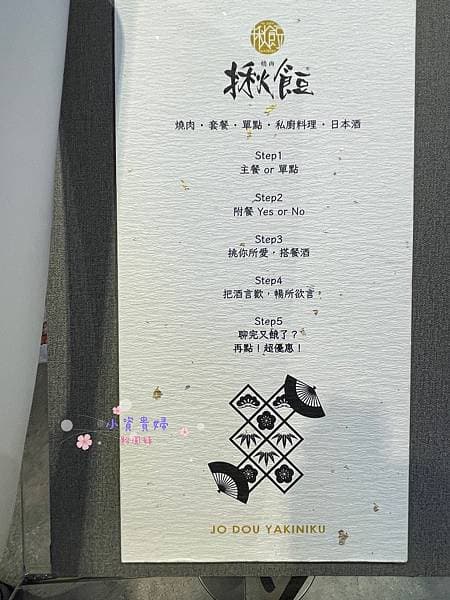 揪飣
燒肉
揪餖
燒肉・套餐・單點・私廚料理・日本酒
Step1
主餐 or 單點
Step2
附餐 Yes or No
Step3
挑你所愛，搭餐酒
Step4
把酒言歡，暢所欲言，
Step5
聊完又餓了？
再點！超優惠！
小資貴婦
JO DOU YAKINIKU